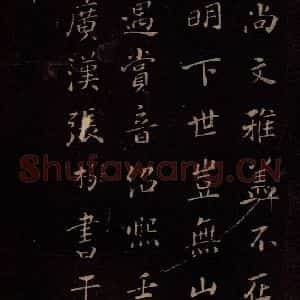 尚文雅不在
明下世豈無山
遇賞音紹熙壬
廣漢張杉書于
Shufawang.CN